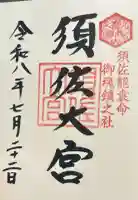 須佐能袁命
御魂鎮之社
須佐大宮
令和八年七月二十二日